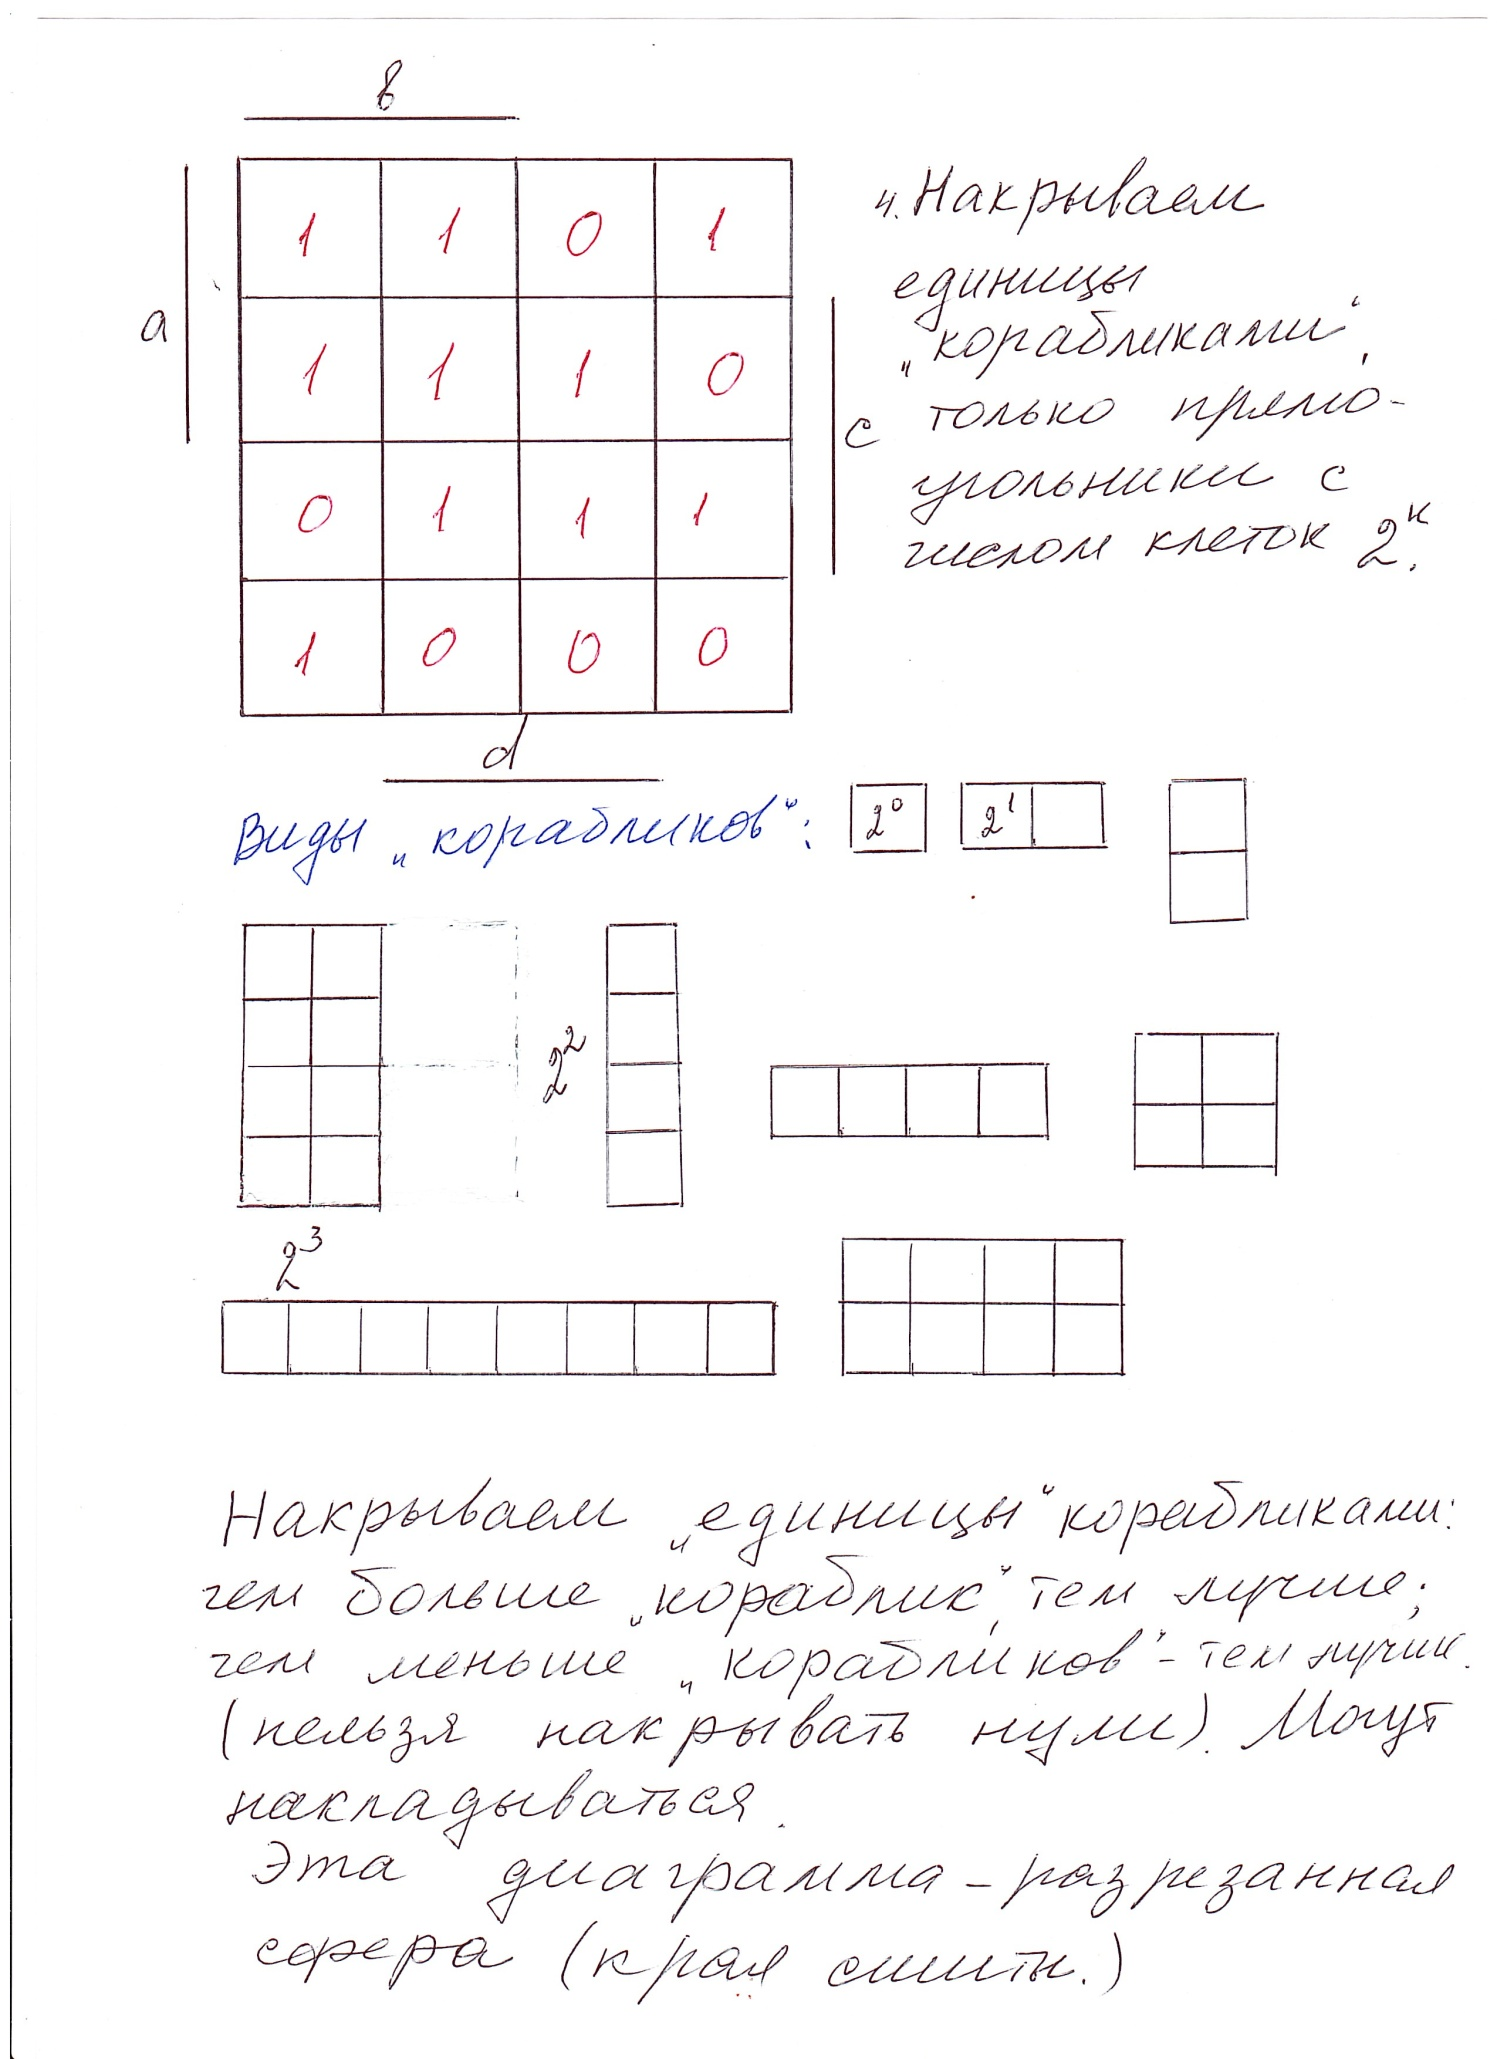 в
1 1 0 1
4. Накрываем
единицы
а
1 1 1 0
„корабликами“,
с
только прямо-
0 1 1 1
угольники с
числом клеток 2ᵏ.
1 0 0 0
d
Виды „корабликов“:
2⁰
2¹
2²
2³
Накрываем „единицы“ корабликами:
чем больше „кораблик“, тем лучше;
чем меньше „корабликов“ - тем лучше.
(нельзя накрывать нули). Могут
накладываться.
Эта диаграмма - разрезанная
сфера (края сшиты.)